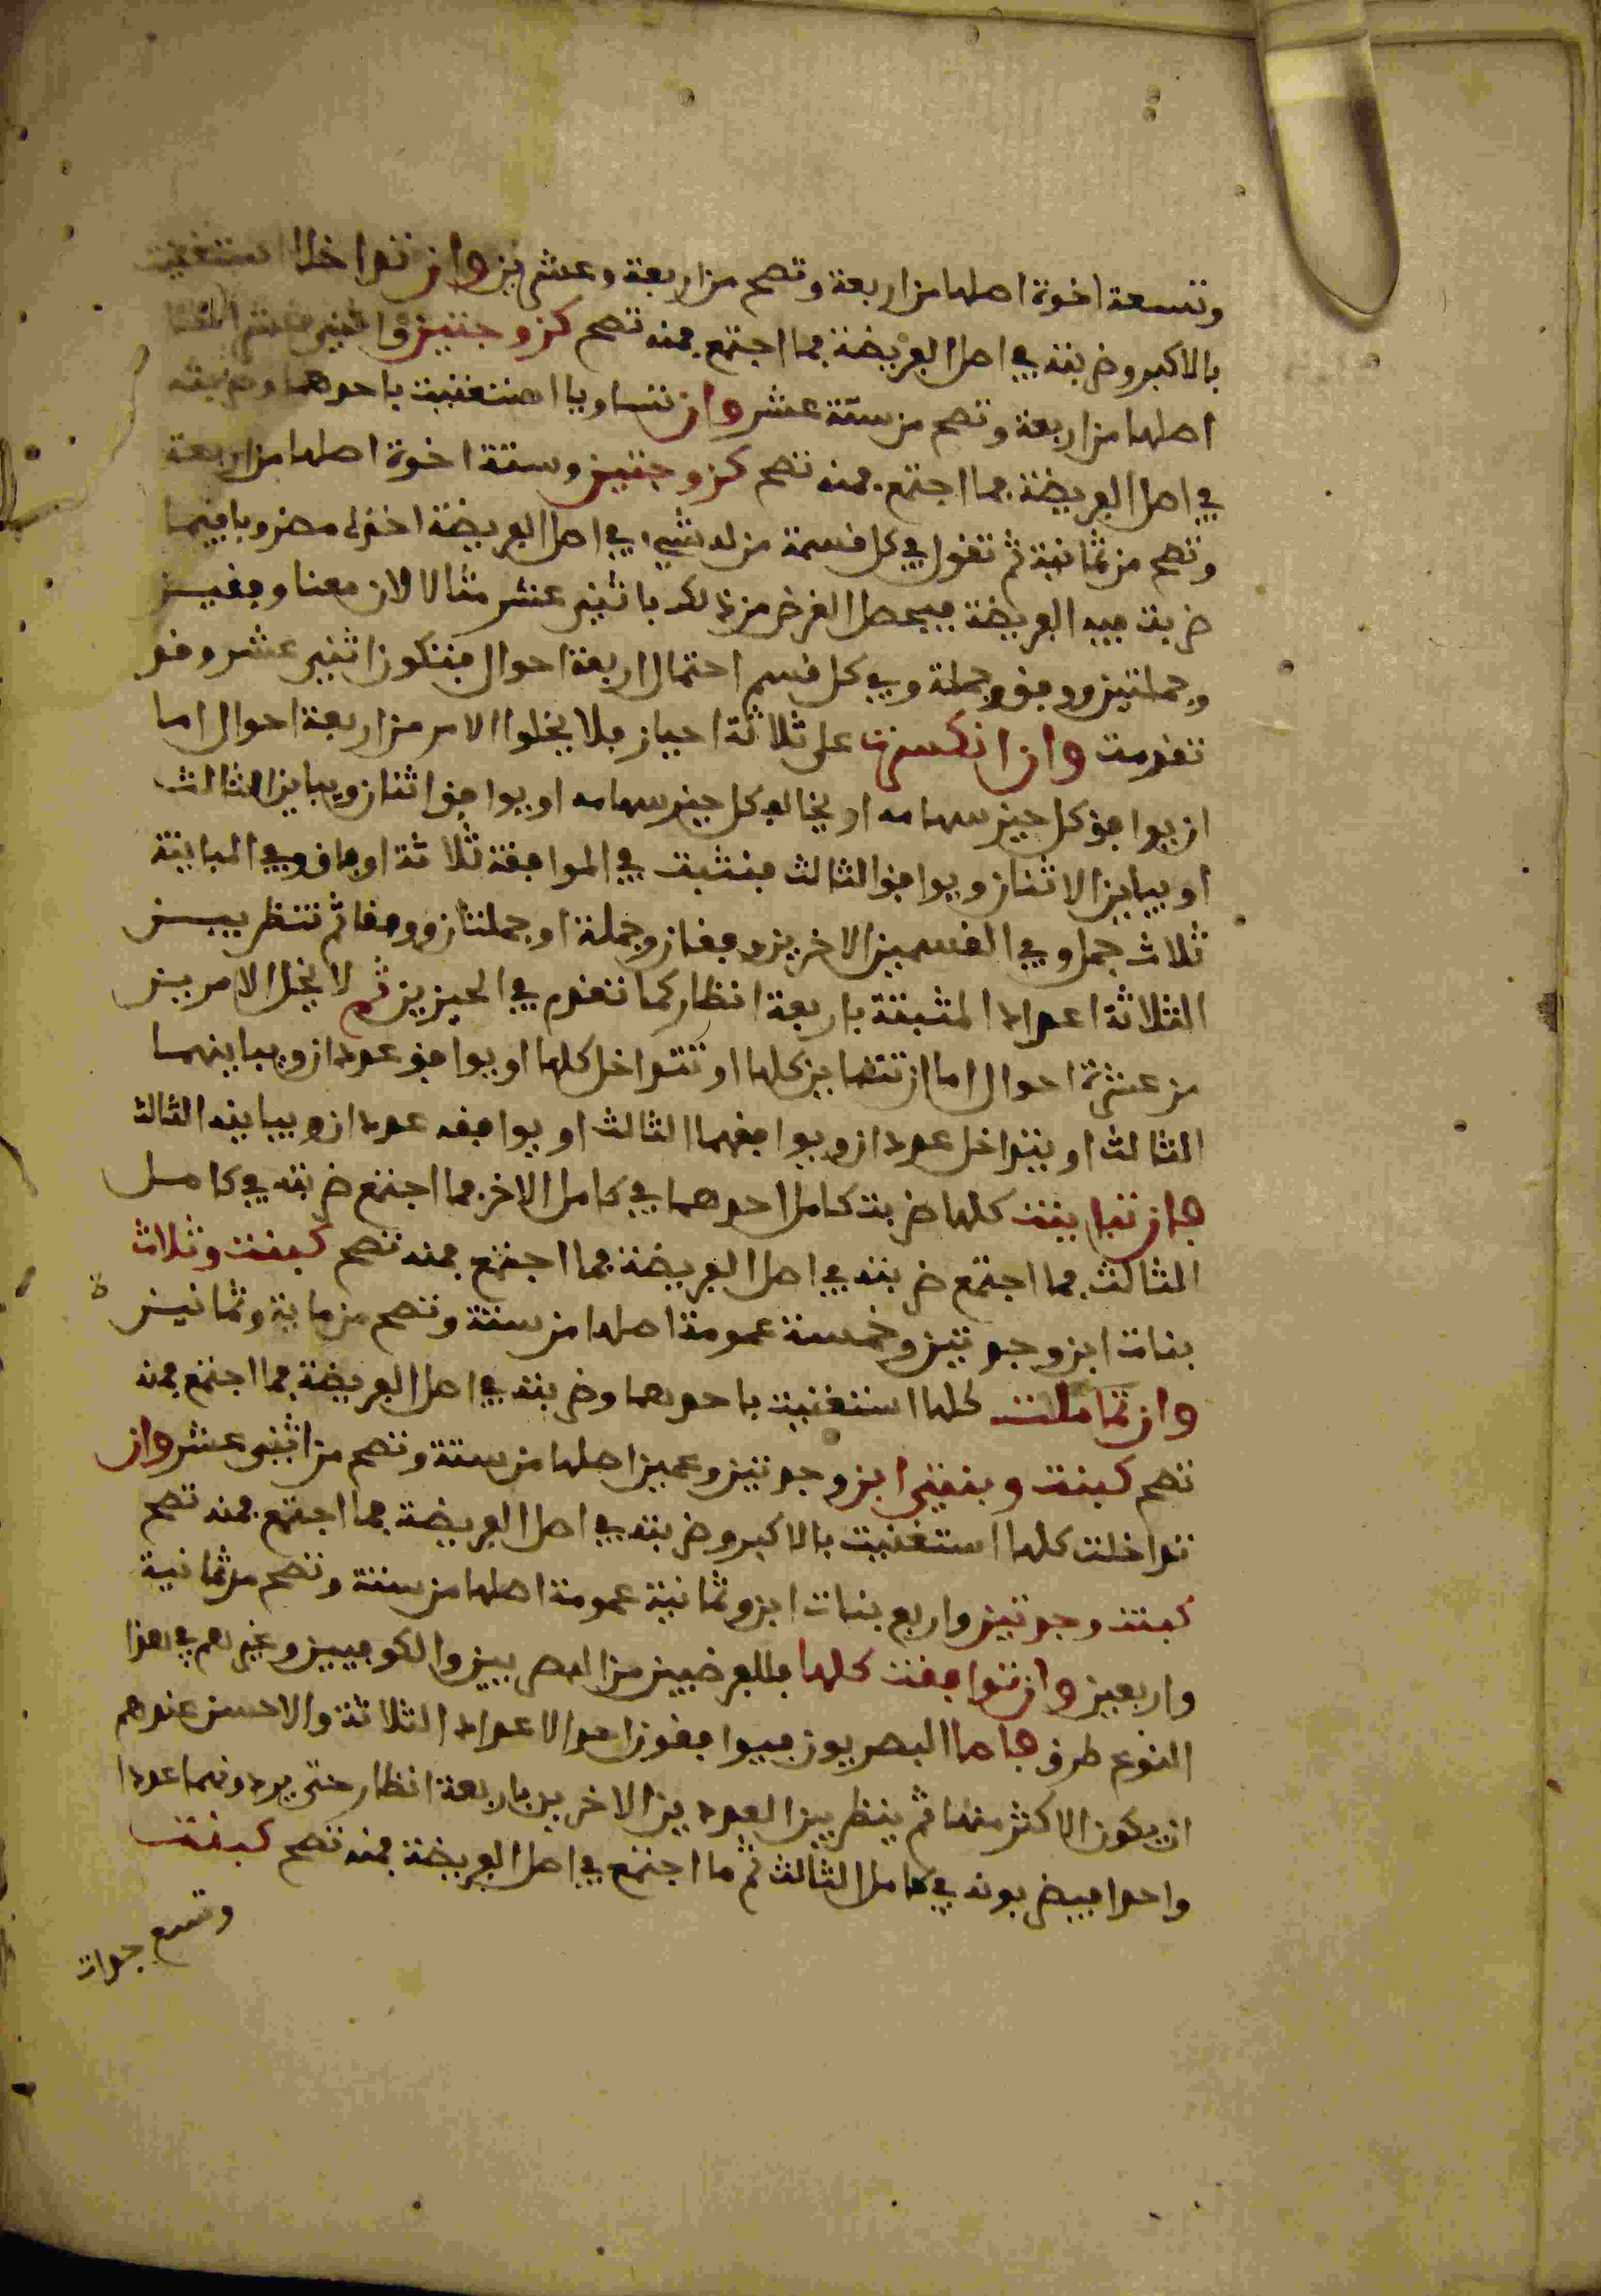 وتسعة اخوة اصلها من اربعة وتصح من اربعة وعشرين وان تداخلا استغنيت
بالاكبر وضربته في اصل الفريضة فما اجتمع فمنه تصح كزوجتين و
اصلها من اربعة وتصح من ستة عشر وان تساويا استغنيت باحدهما وضربته
في اصل الفريضة فما اجتمع فمنه تصح كزوجتين وستة اخوة اصلها من اربعة
وتصح من ثمانية ثم تقول في كل قسمة من له شيء في اصل الفريضة اخذه مضروبا فيما
ضربت فيه الفريضة فيحصل الغرض من ذلك باثني عشر مثالا لان معنا وفقين
وجملتين ووفق وجملة وفي كل قسم احتمال اربعة احوال فتكون اثني عشر وقد
تقدمت وان انكسرت على ثلاثة احياز فلا يخلوا الامر من اربعة احوال اما
ان يوافق كل حيز سهامه او يخالف كل حيز سهامه او يوافق اثنان ويباين الثالث
او يباين الاثنان ويوافق الثالث فتثبت في الموافقة ثلاثة اوفاق وفي المباينة
ثلاث جمل وفي القسمين الاخرين وفقان وجملة او جملتان ووفقا ثم تنظر بيـن
الثلاثة اعداد المثبتة باربعة انظار كما تقدم في الحيزين ثم لا يخل الامر بين
من عشرة احوال اما ان تتباين كلها او تتداخل كلها او يوافق عددان ويباينهما
الثالث او يتداخل عددان ويوافقهما الثالث او يوافقه عددان ويباينه الثالث
فان تباينت كلها ضربت كامل احدهما في كامل الاخر فما اجتمع ضربته في كامل
الثالث فما اجتمع ضربته في اصل الفريضة فما اجتمع فمنه تصح كبنت وثلاث
بنات ابن وجدتين وخمسة عمومة اصلها من ستة وتصح من ماية وثمانين
وان تماثلت كلها استغنيت باحدهما وضربته في اصل الفريضة فما اجتمع فمنه
تصح كبنت وبنتي ابن وجدتين وعمين اصلها من ستة وتصح من اثنى عشر وان
تداخلت كلها استغنيت بالاكبر وضربته في اصل الفريضة فما اجتمع فمنه تصح
كبنت وجدتين واربع بنات ابن وثمانية عمومة اصلها من ستة وتصح من ثمانية
واربعين وان توافقت كلها فللفرضيين من البصريين والكوفيين وغيرهم في هذا
النوع طرق فاما البصريون فيوافقون احد الاعداد الثلاثة والاحسن عندهم
ان يكون الاكثر منها ثم ينظر بين العددين الاخرين باربعة انظار حتى يردونهما عددا
واحدا فيضربونه في كامل الثالث ثم ما اجتمع في اصل الفريضة فمنه تصح كبنت
وتسع جدات